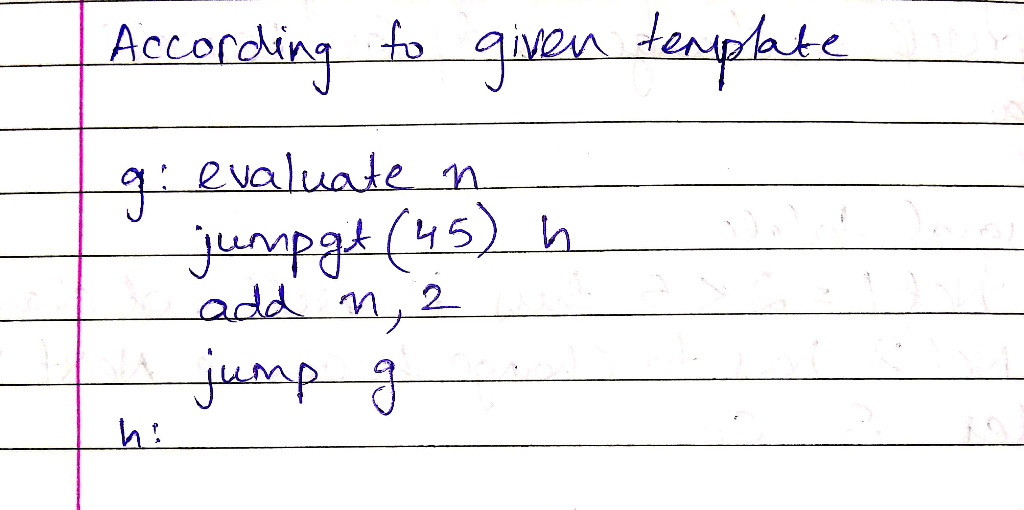 According to given template
g: evaluate n
jumpgt (45) h
add n, 2
jump g
h: